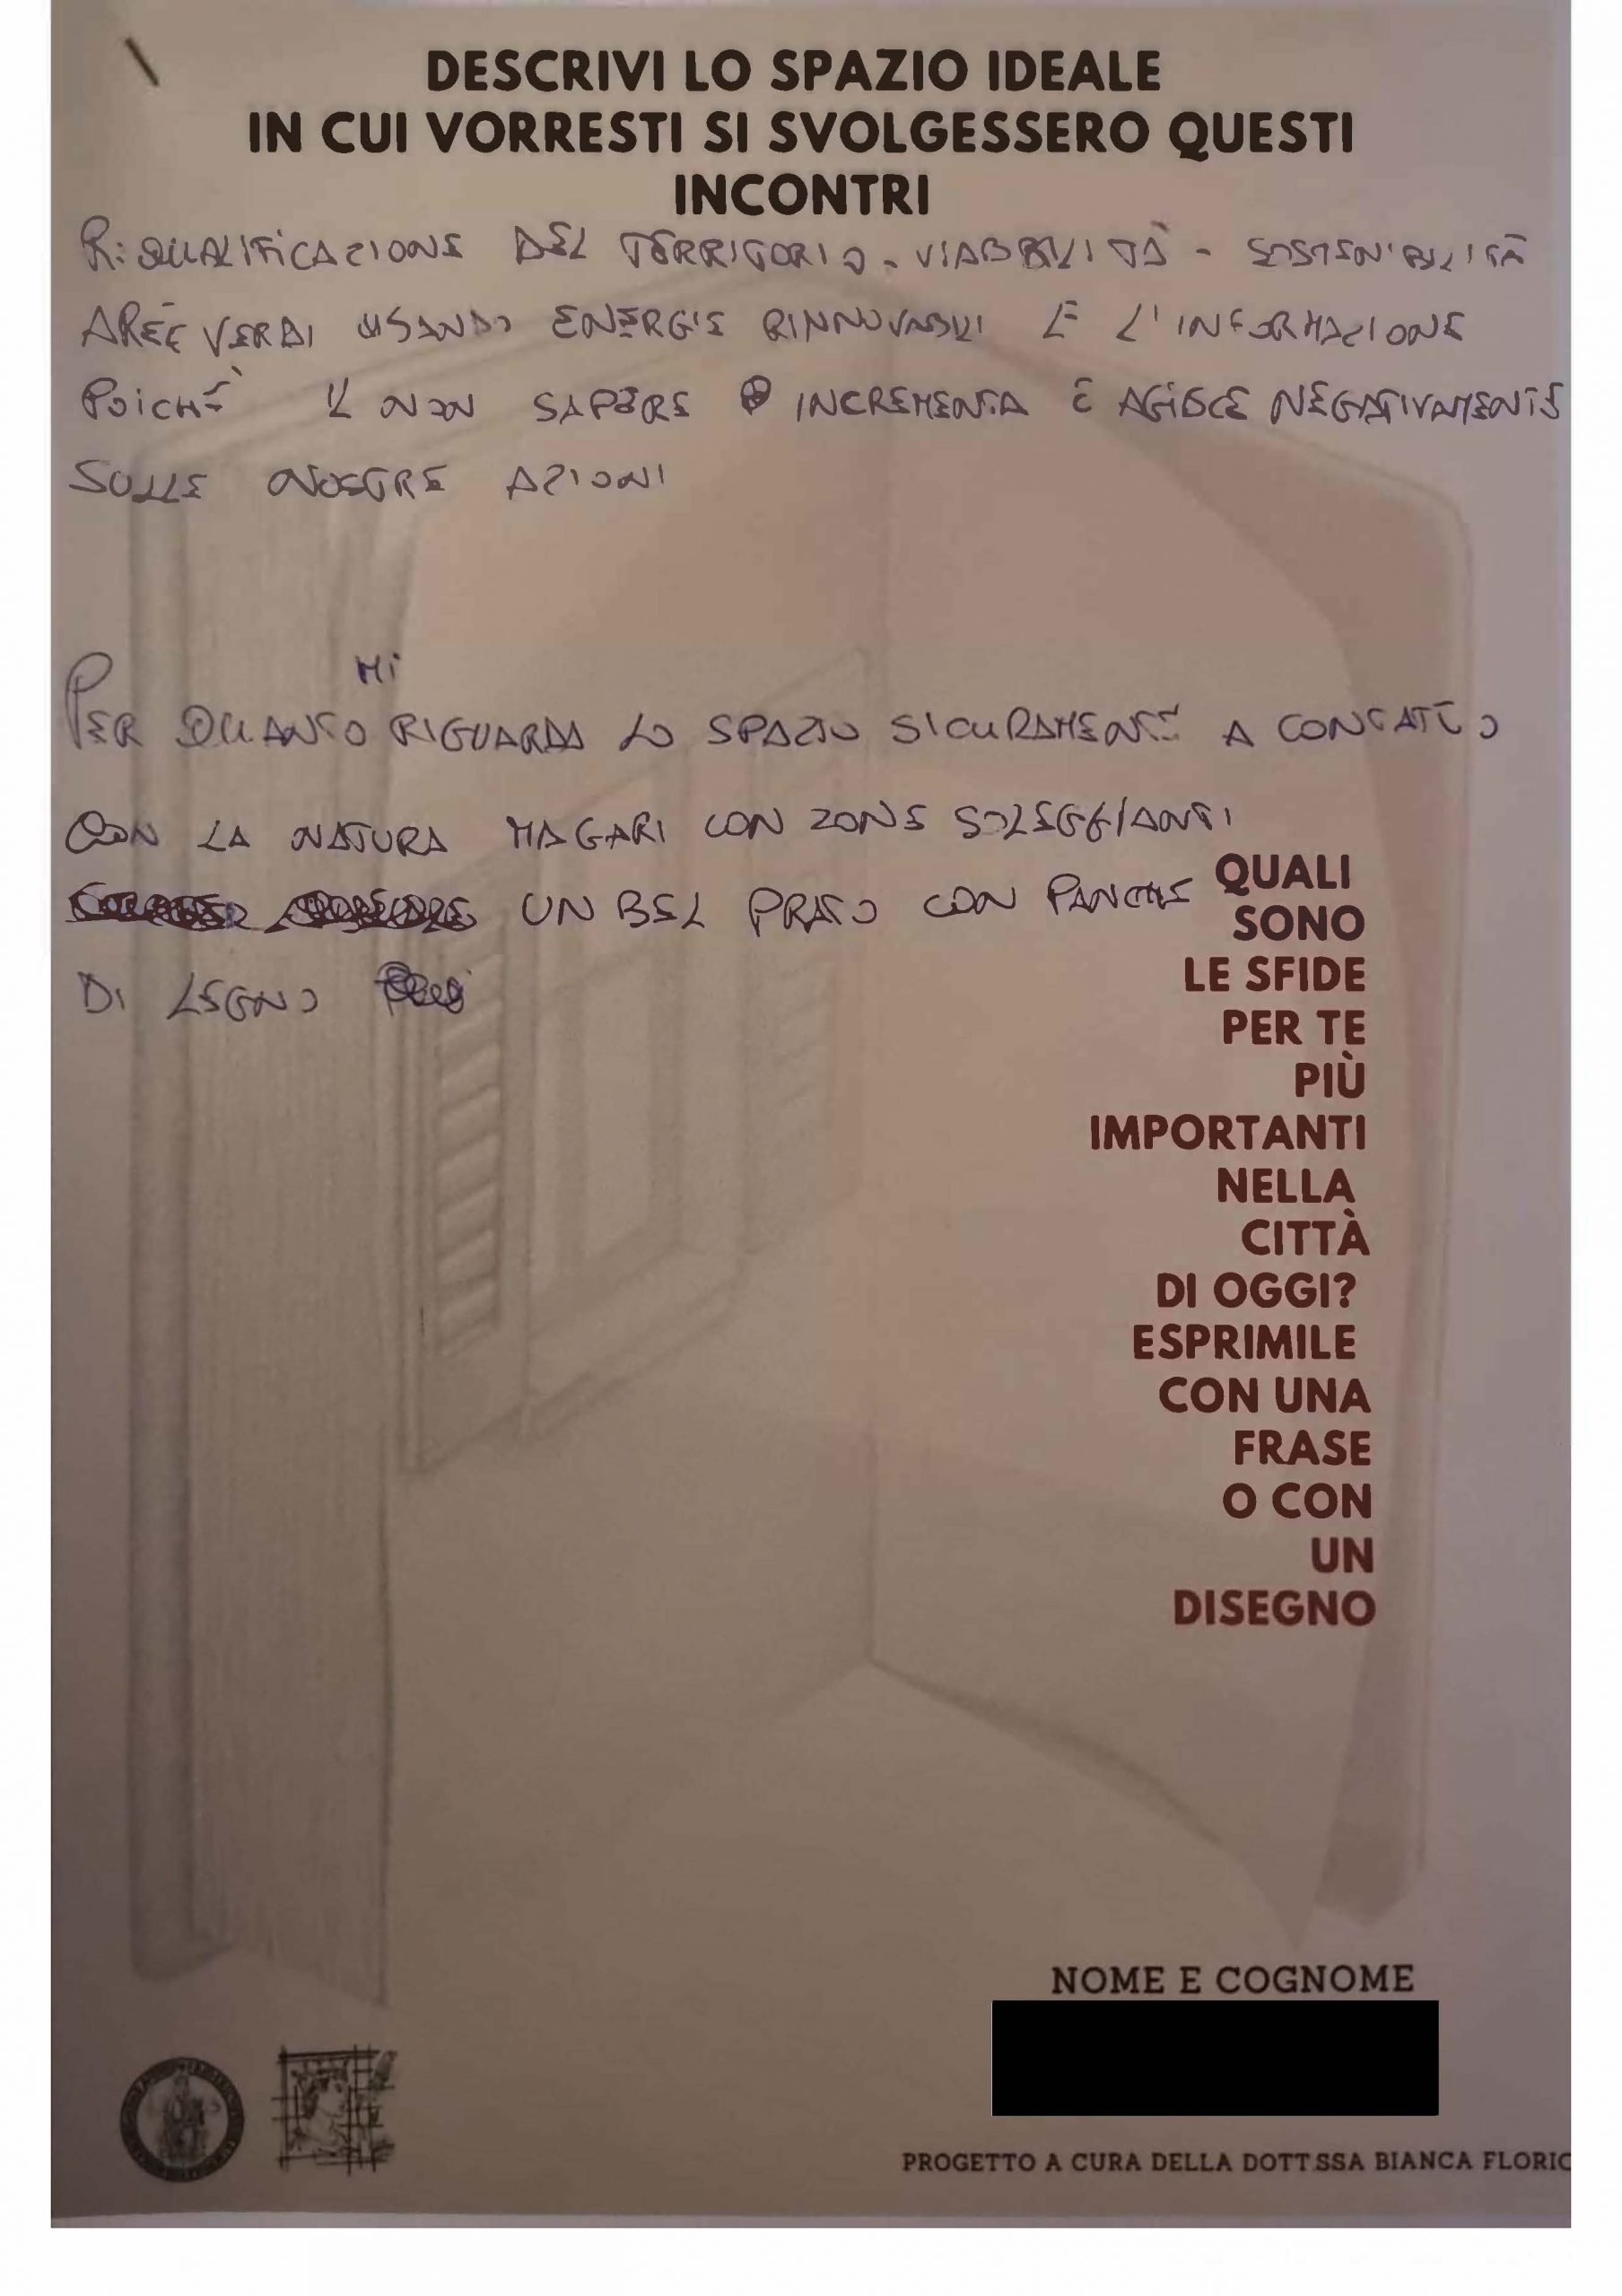 DESCRIVI LO SPAZIO IDEALE
IN CUI VORRESTI SI SVOLGESSERO QUESTI
INCONTRI
RiQUALIFICAZIONE DEL TERRITORIO - VIABBILITÀ - SOSTENIBILITÀ
AREE VERDI USANDO ENERGIE RINNOVABILI E L'INFORMAZIONE
POICHÈ IL NON SAPERE INCREMENTA E AGISCE NEGATIVAMENTE
SULLE NOSTRE AZIONI
PER QUANTO MI RIGUARDA LO SPAZIO SICURAMENTE A CONTATTO
CON LA NATURA MAGARI CON ZONE SOLEGGIANTI
UN BEL PRATO CON PANCHE
DI LEGNO
QUALI
SONO
LE SFIDE
PER TE
PIÙ
IMPORTANTI
NELLA
CITTÀ
DI OGGI?
ESPRIMILE
CON UNA
FRASE
O CON
UN
DISEGNO
NOME E COGNOME
PROGETTO A CURA DELLA DOTT.SSA BIANCA FLORIO